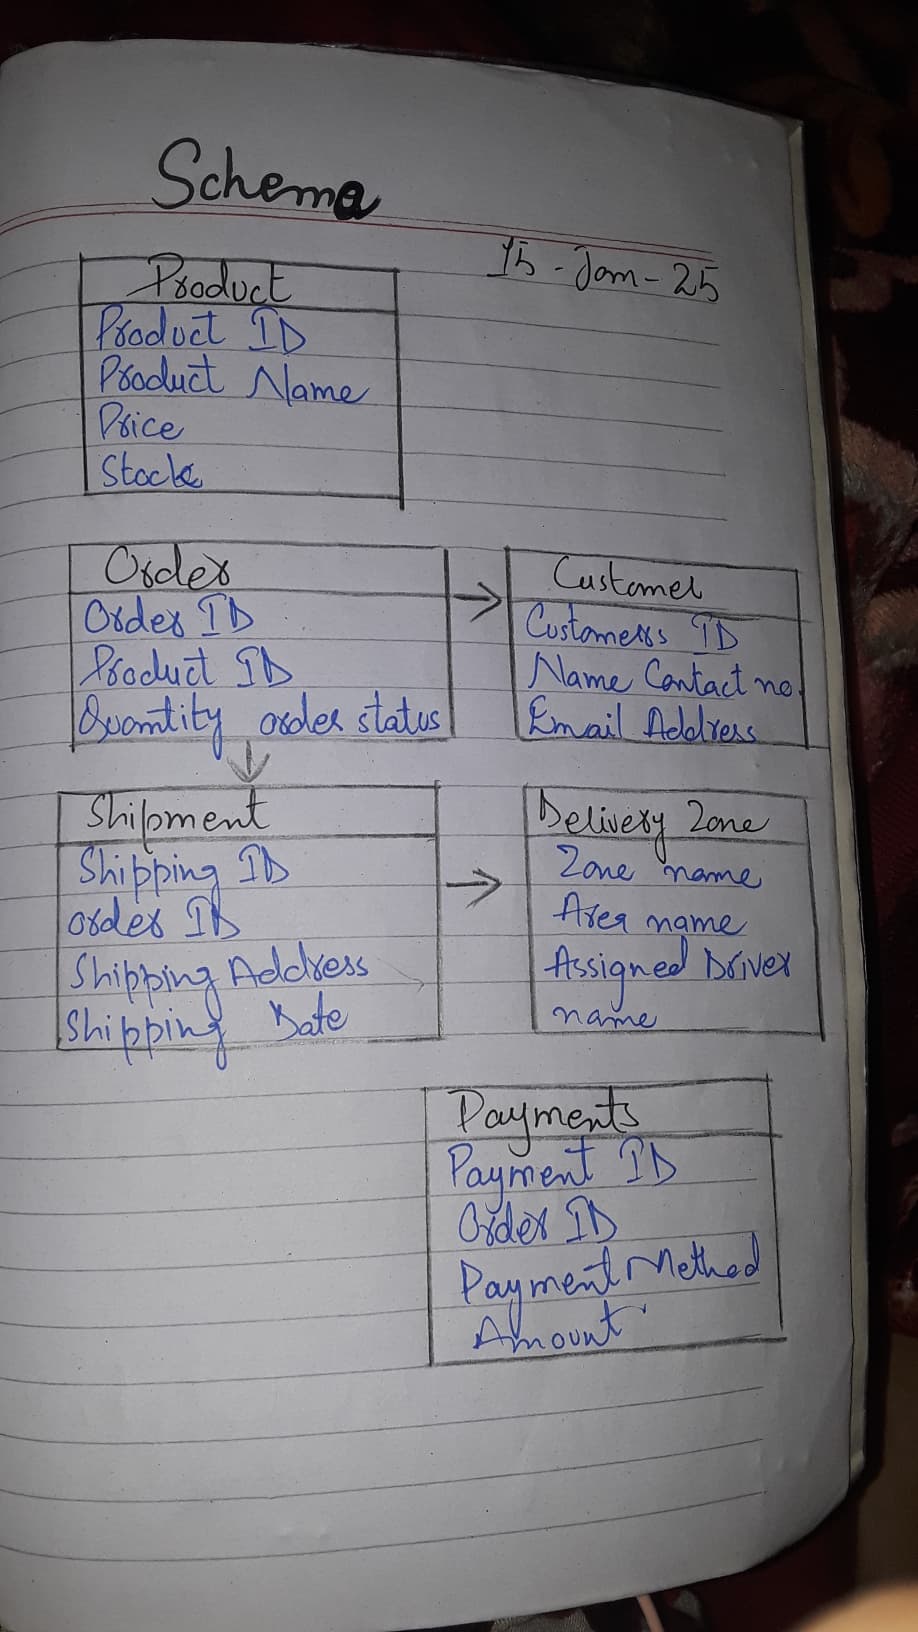 Schema
15 - Jan - 25
Product
Product ID
Product Name
Price
Stock
Order
Order ID
Product ID
Quantity order status
Customer
Customers ID
Name Contact no.
Email Address
Shipment
Shipping ID
order ID
Shipping Address
Shipping Date
Delivery Zone
Zone name
Area name
Assigned Driver
name
Payments
Payment ID
Order ID
Payment Method
Amount